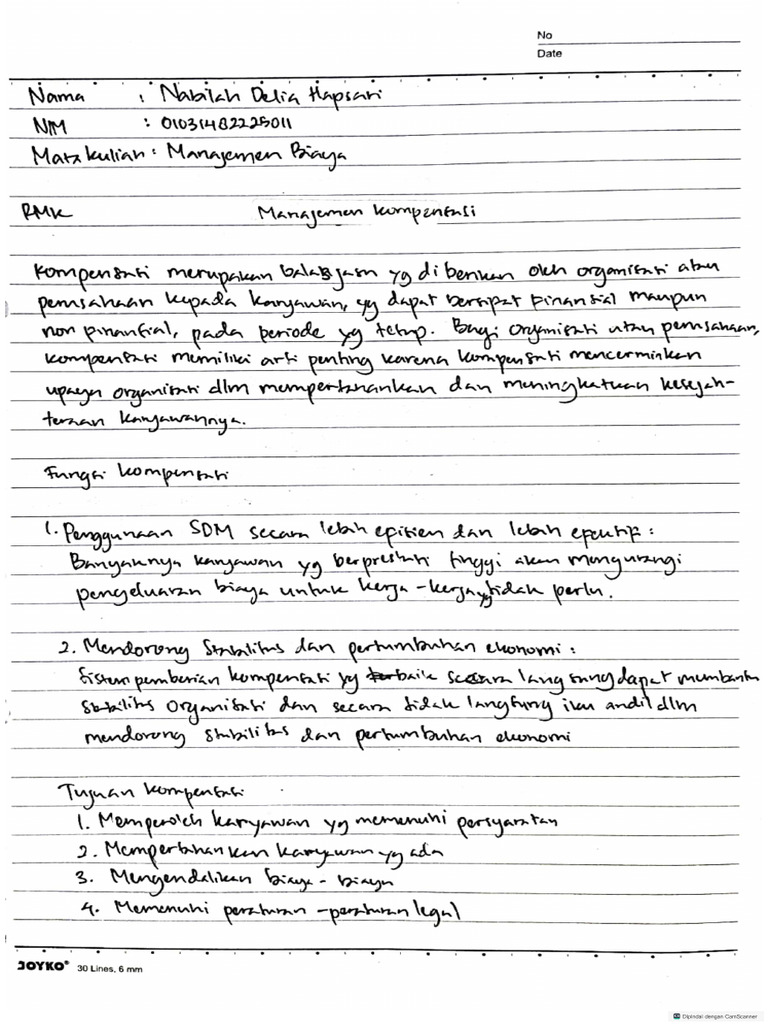 No
Date
Nama : Nabilah Delia Hapsari
NIM : 01031482225011
Mata kuliah : Manajemen Biaya
RMK Manajemen Kompensasi
Kompensasi merupakan balas jasa yg diberikan oleh organisasi atau
perusahaan kepada karyawan, yg dapat bersifat finansial maupun
non finansial, pada periode yg tetap. Bagi organisasi atau perusahaan,
kompensasi memiliki arti penting karena kompensasi mencerminkan
upaya organisasi dlm mempertahankan dan meningkatkan kesejah-
teraan karyawannya.
Fungsi kompensasi
1. Penggunaan SDM secara lebih efisien dan lebih efektif :
Banyaknya karyawan yg berprestasi tinggi akan mengurangi
pengeluaran biaya untuk kerja - kerja yg tidak perlu.
2. Mendorong Stabilitas dan pertumbuhan ekonomi :
Sistem pemberian kompensasi yg baik secara langsung dapat membantu
stabilitas organisasi dan secara tidak langsung ikut andil dlm
mendorong stabilitas dan pertumbuhan ekonomi
Tujuan kompensasi
1. Memperoleh karyawan yg memenuhi persyaratan
2. Mempertahankan karyawan yg ada
3. Mengendalikan biaya - biaya
4. Memenuhi peraturan - peraturan legal
JOYKO® 30 Lines, 6 mm
Dipindai dengan CamScanner